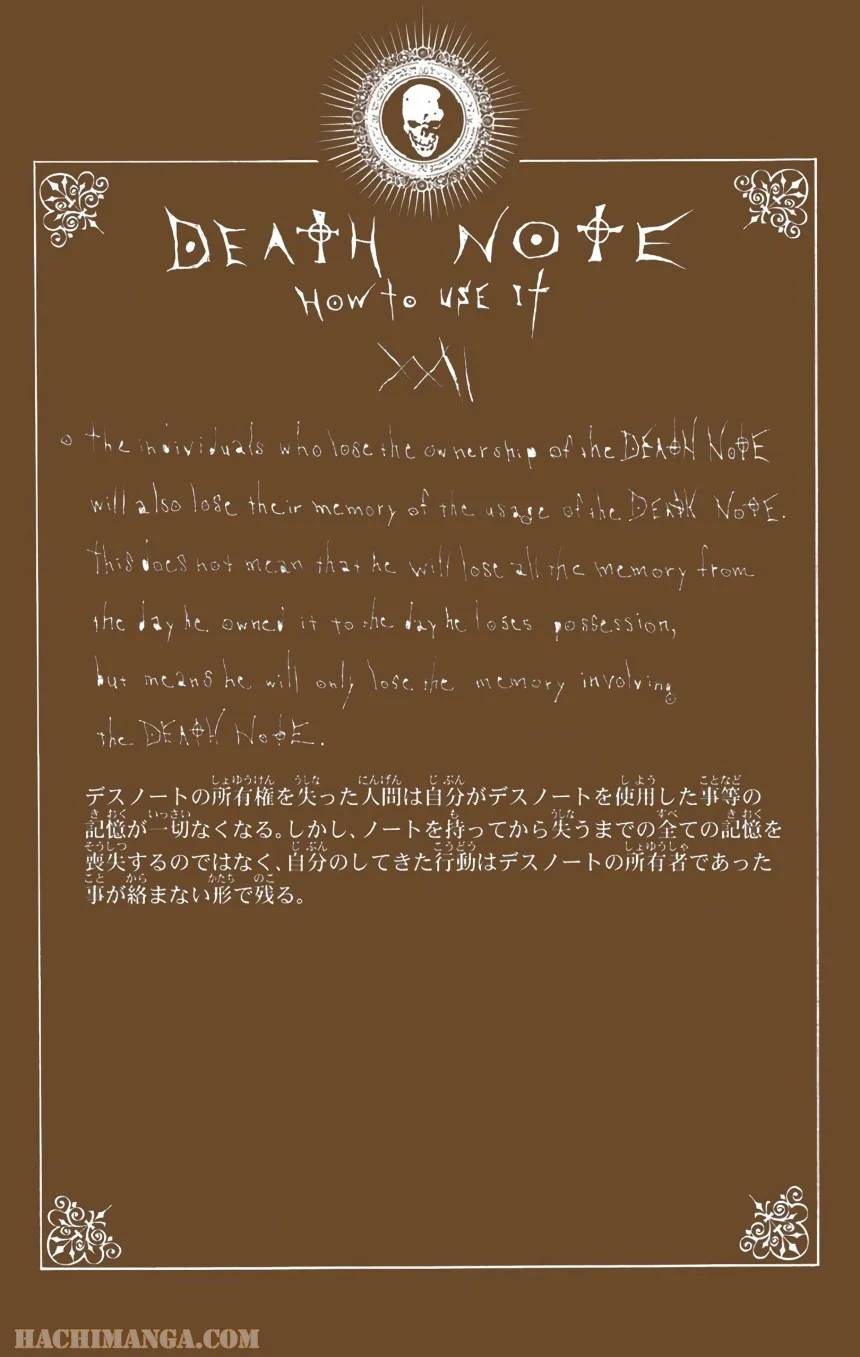 DEATH NOTE
HOW to USE It
XXII
The individuals who lose the ownership of the DEATH NOTE
will also lose their memory of the usage of the DEATH NOTE.
This does not mean that he will lose all the memory from
the day he owned it to the day he loses possession,
but means he will only lose the memory involving
the DEATH NOTE.
デスノートの所有権を失った人間は自分がデスノートを使用した事等の
記憶が一切なくなる。しかし、ノートを持ってから失うまでの全ての記憶を
喪失するのではなく、自分のしてきた行動はデスノートの所有者であった
事が絡まない形で残る。
HACHIMANGA.COM